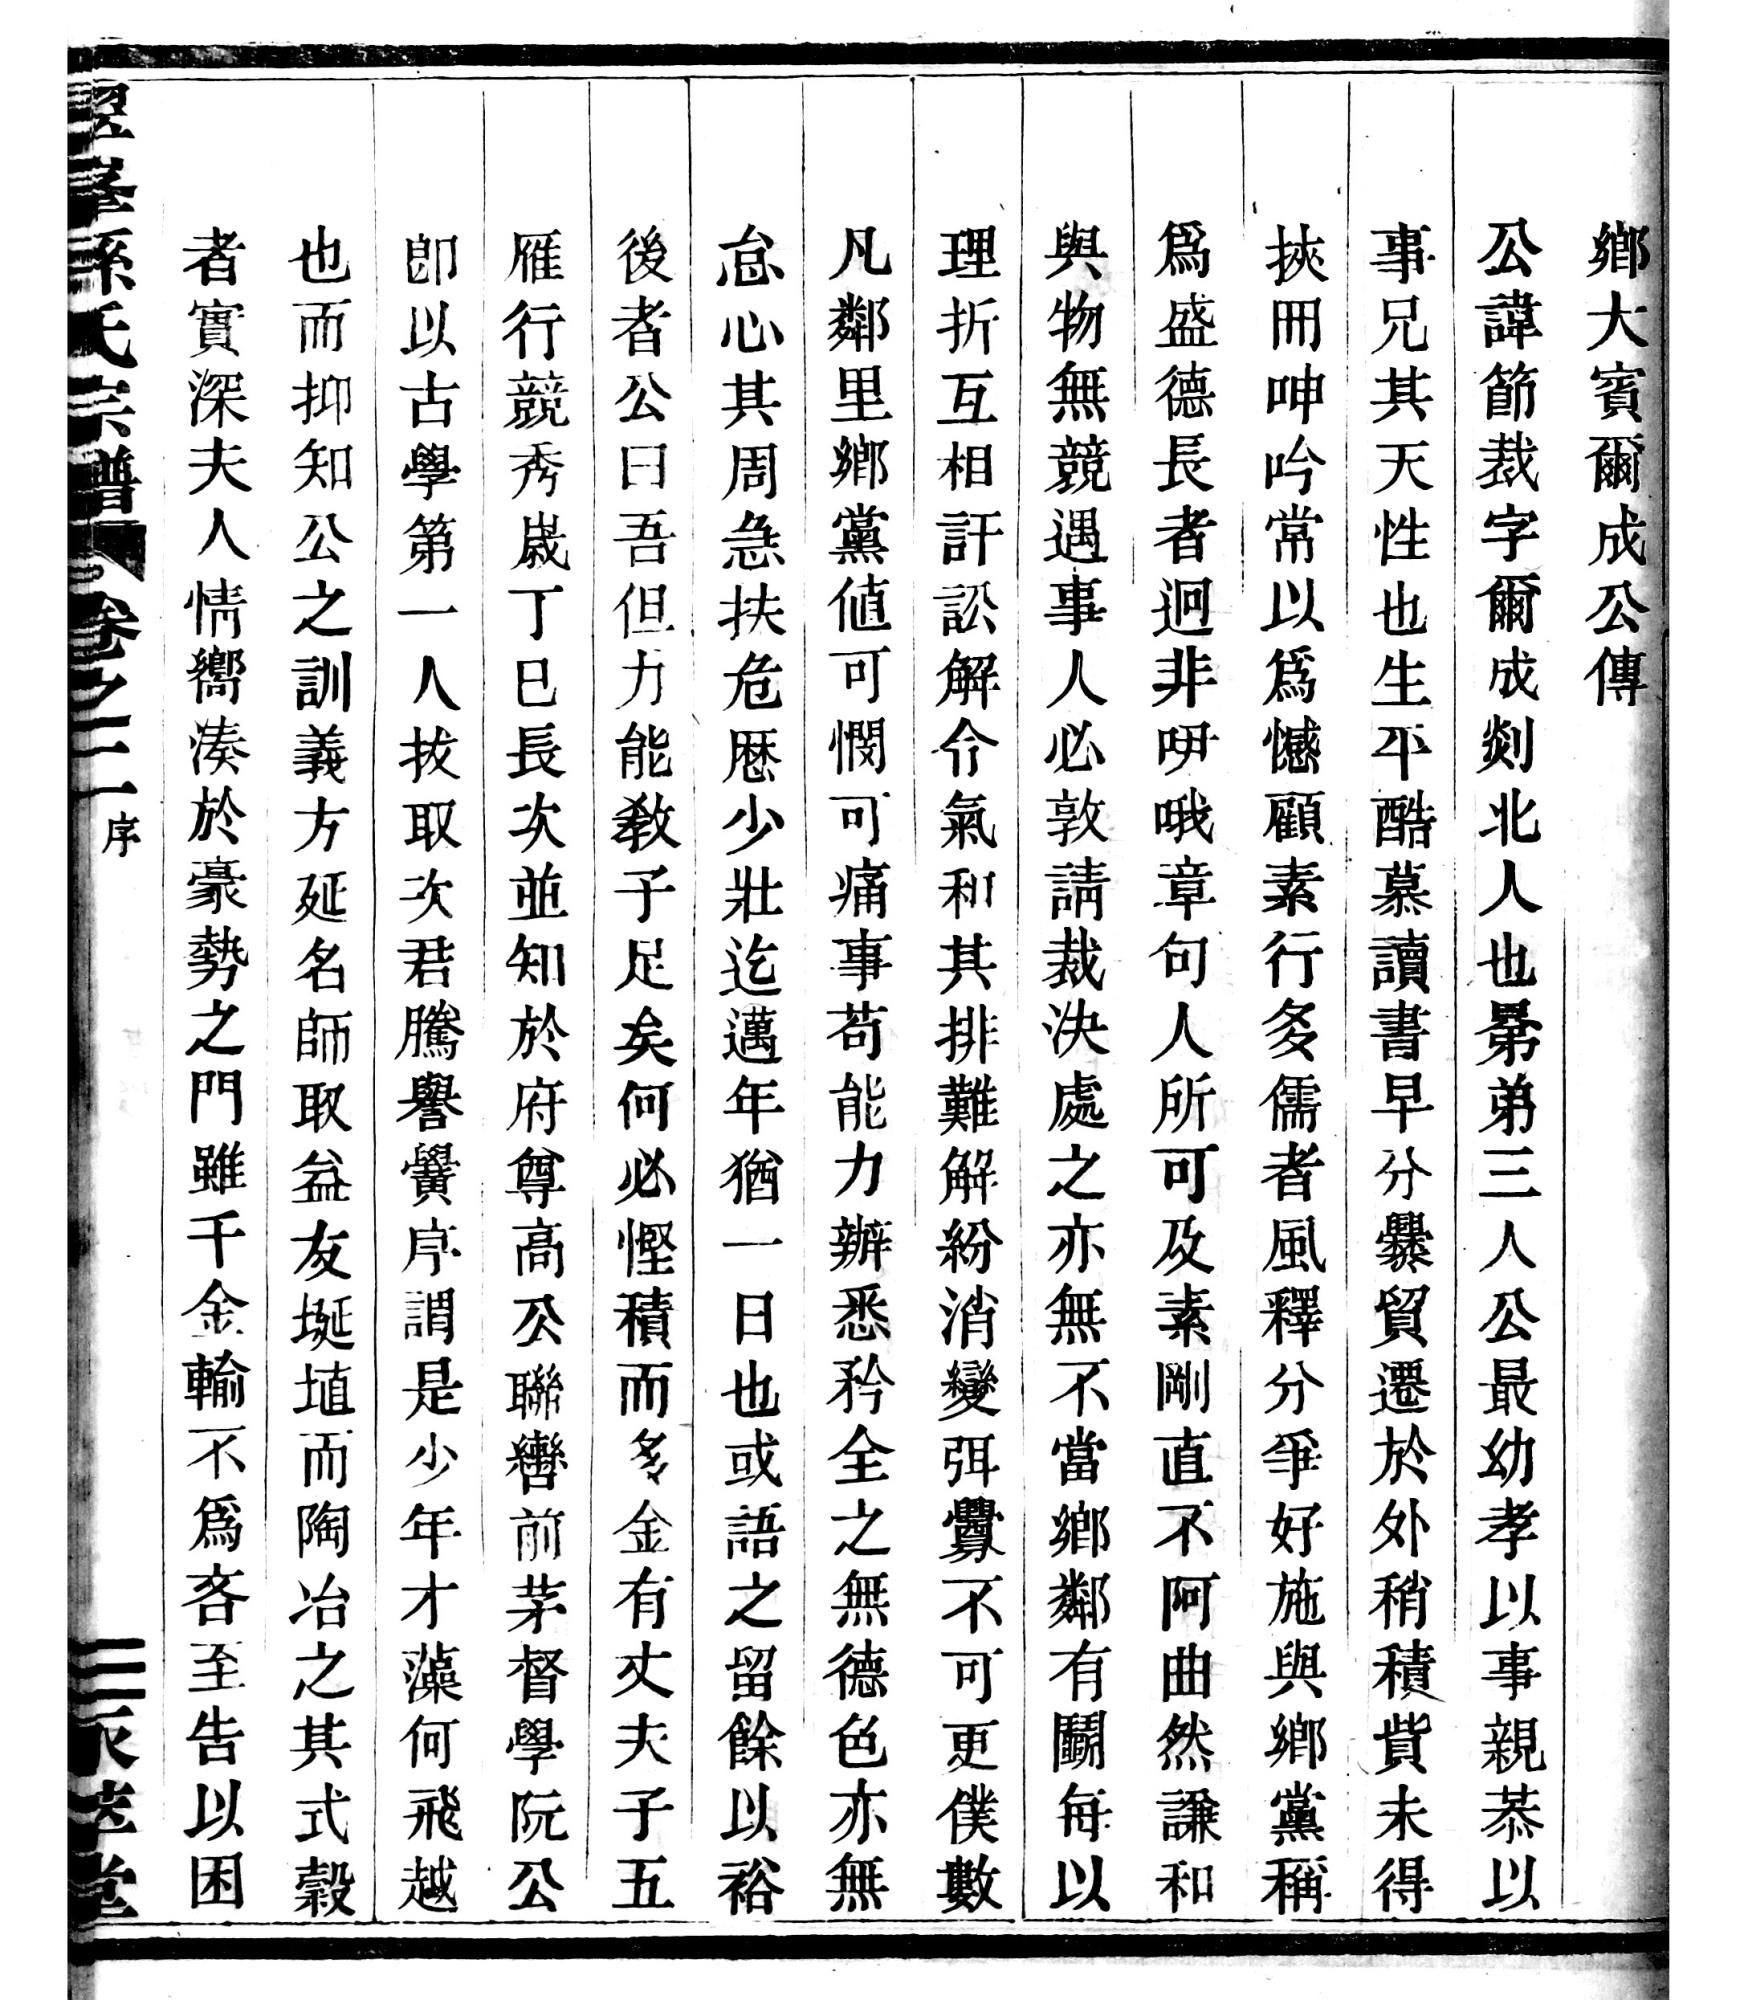 鄉大賓爾成公傳
公諱節裁字爾成剡北人也晜弟三人公最幼孝以事親恭以
事兄其天性也生平酷慕讀書早分爨貿遷於外稍積貲未得
挾冊呻吟常以爲憾顧素行多儒者風釋分爭好施與鄉黨稱
爲盛德長者迥非呫哦章句人所可及素剛直不阿曲然謙和
與物無競遇事人必敦請裁決處之亦無不當鄉鄰有鬬每以
理折互相訐訟解令氣和其排難解紛消變弭釁不可更僕數
凡鄰里鄉黨値可憫可痛事苟能力辦悉矜全之無德色亦無
怠心其周急扶危厯少壯迄邁年猶一日也或語之留餘以裕
後者公曰吾但力能敎子足矣何必慳積而多金有丈夫子五
雁行競秀歲丁巳長次並知於府尊高公聯轡前茅督學阮公
卽以古學第一人拔取次君騰譽黌序謂是少年才藻何飛越
也而抑知公之訓義方延名師取益友埏埴而陶冶之其式穀
者實深夫人情嚮湊於豪勢之門雖千金輸不爲吝至告以困
孫氏宗譜 卷之二 序 三 萃堂